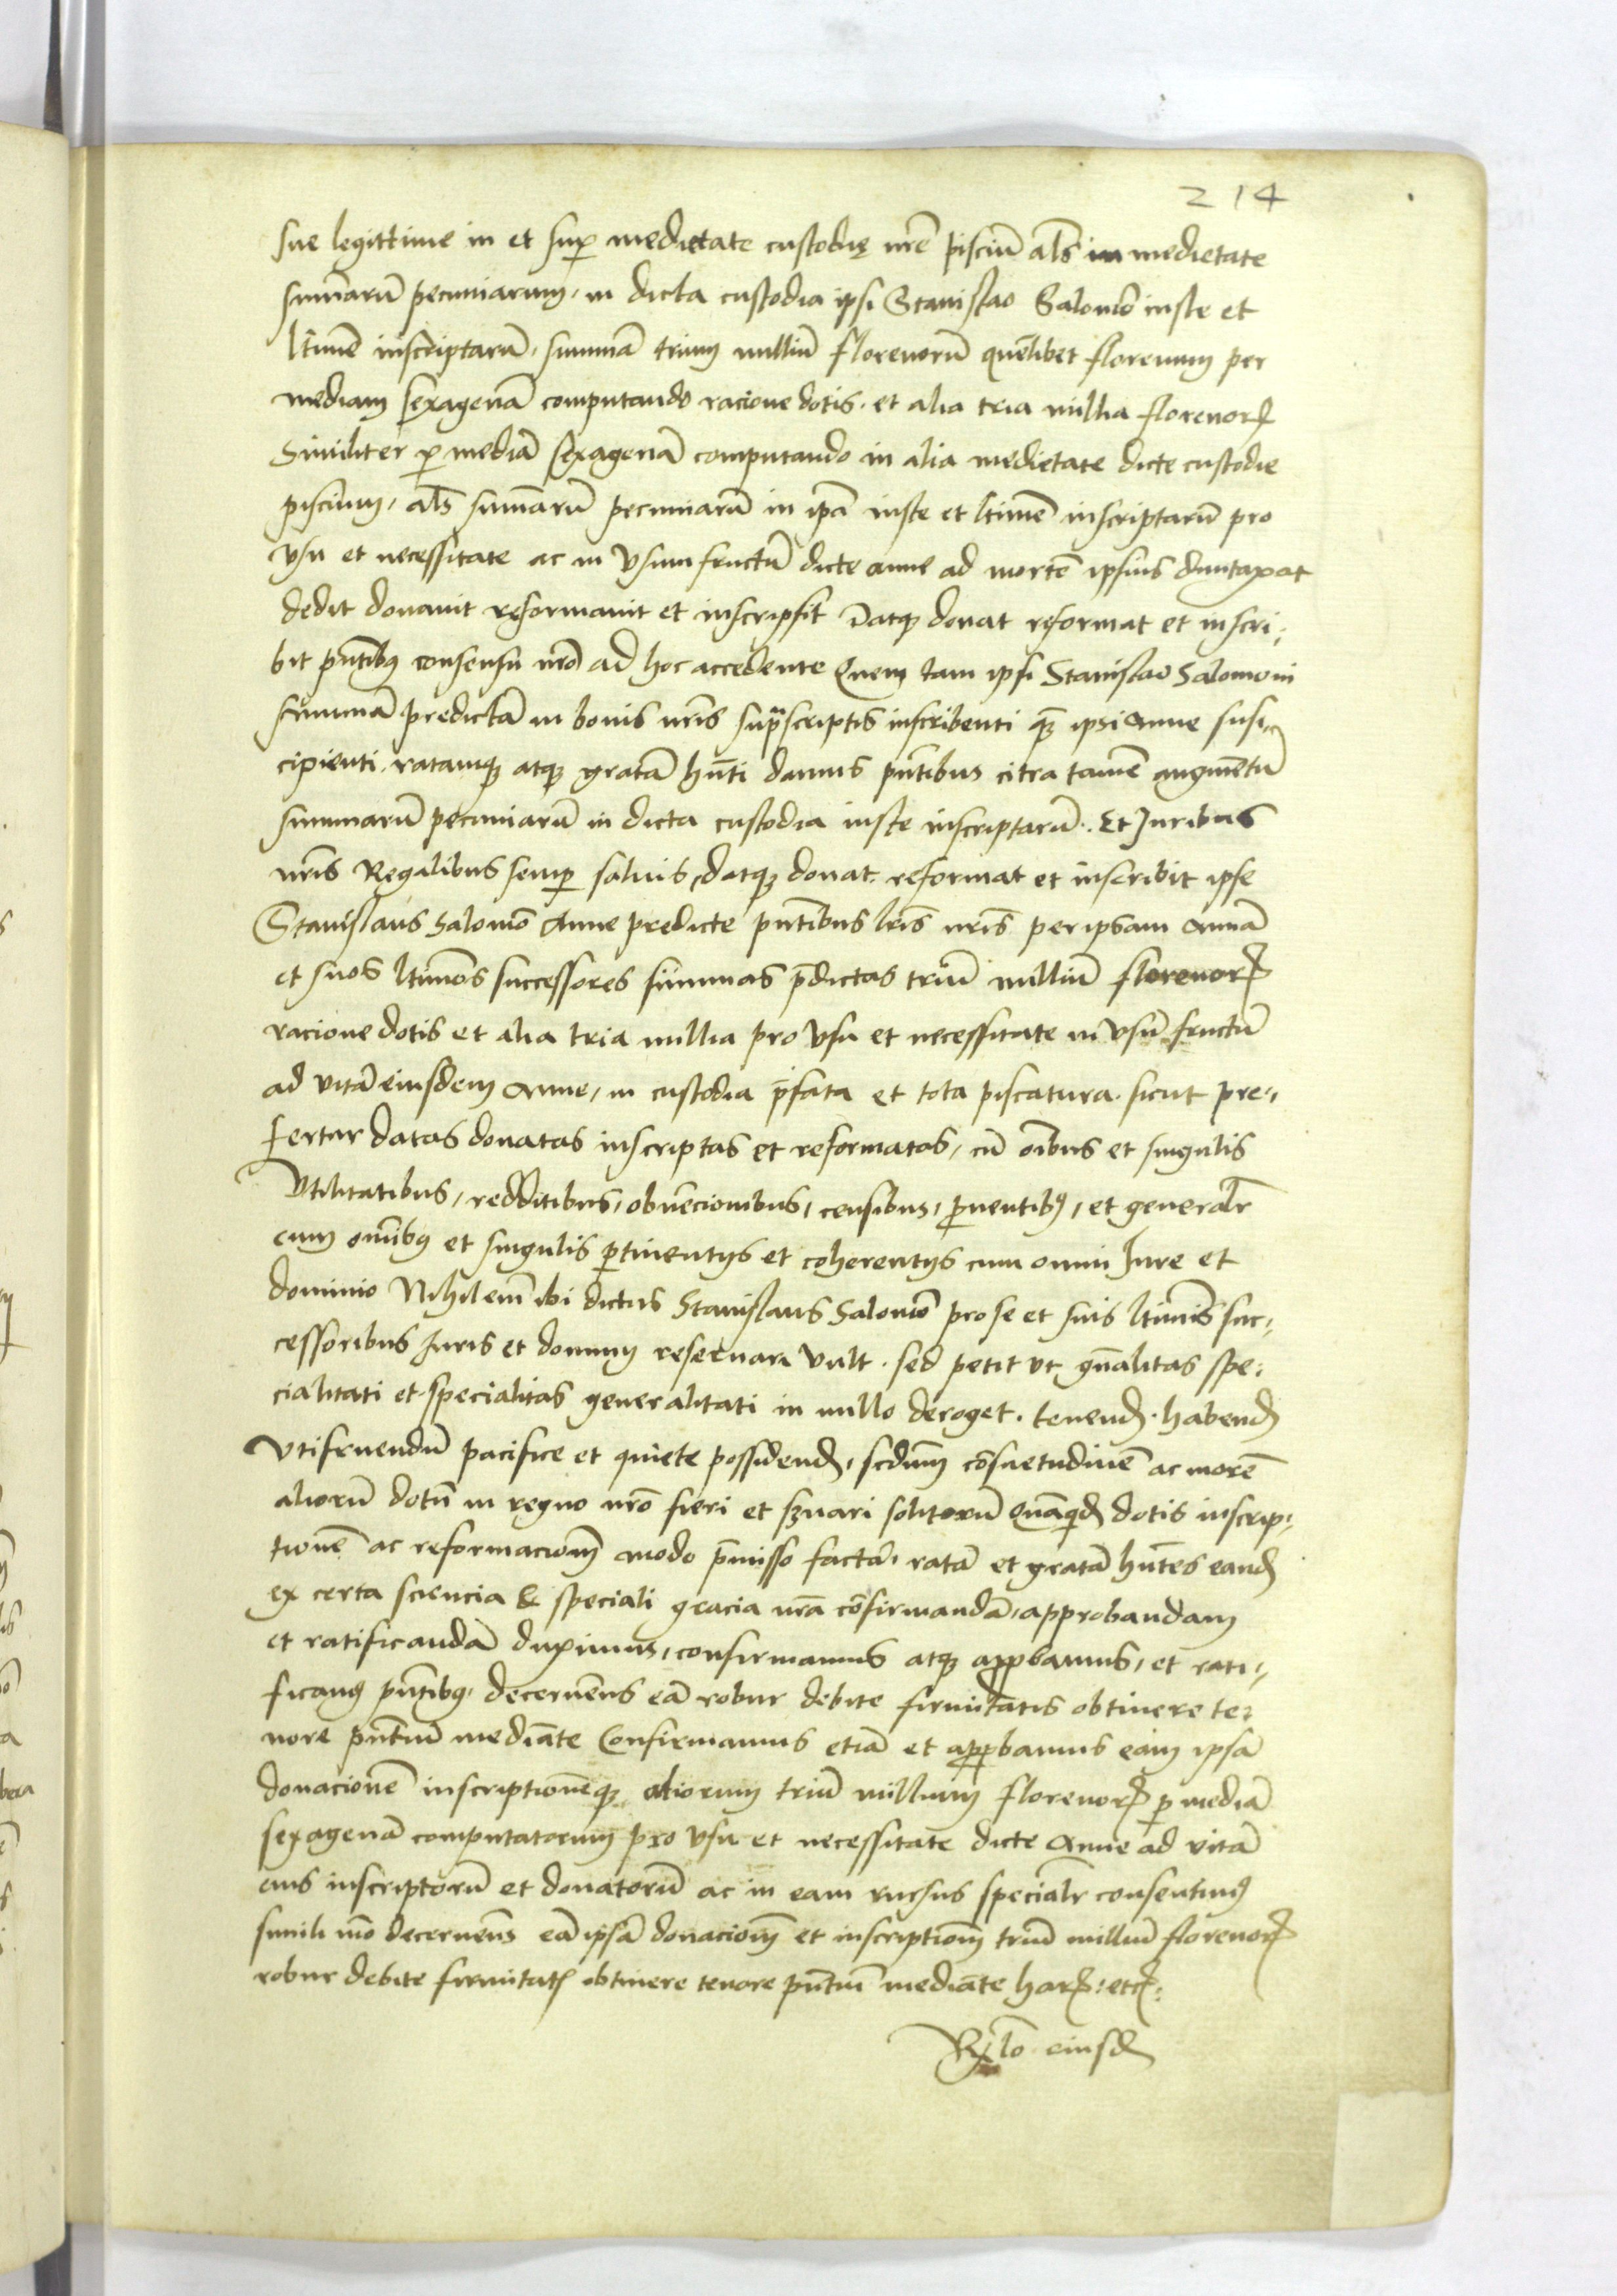 214
sue legittime in et sup medietate custodię nre pisciu als in medietate
summaru pecuniarum, in dicta custodia ipsi Stanislao Salomo iuste et
ltime inscriptaru, summa trium milliu florenoru quelibet florenum per
mediam sexagena computando racione dotis. et alia tria millia floreno℟
Similiter p media sexagena computando in alia medietate dicte custodie
piscium, als summaru pecuniaru in ipa iuste et ltime inscriptaru pro
vsu et necessitate ac in vsumfructu dicte anne ad morte ipsius duntaxat
dedit donauit reformauit et inscripsit Datq donat reformat et inscri,
bit pntibꝯ consensu nro ad hoc accedente Quem tam ipsi Stanislao Salomoni
summa predicta in bonis nris suprascriptis inscribenti q ipsi Anne susi,
cipienti, ratamq atq grata hnti damus pntibus citra tamen augmentu
summaru pecuniaru in dicta custodia iuste inscriptaru. Et Juribus
nris Regalibus semp saluis, datq donat reformat et inscribit ipse
Stanislaus Salomo Anne predicte pntibus lris nris per ipsam Anna
et suos ltimos successores summas pdictas triu milliu floreno℟
racione dotis et alia tria millia pro vsu et necessitate in vsu fructu
ad vita eiusdem Anne, in custodia pfata et tota piscatura. sicut pre,
fertur datas donatas inscriptas et reformatas, cu oibus et singulis
Vtilitatibus, redditibus, obuencionibus, censibus, puentibꝯ, et generalr
cum omibꝯ et singulis ptinentijs et coherentijs cum omni Jure et
dominio Nihil em ibi dictus Stanislaus Salomo pro se et suis ltimis suc,
cessoribus Juris et dominij reseruari vult. sed petit vt gnalitas spe,
cialitati et specialitas generalitati in nullo deroget. tenend. habend
Vtifruendu pacifice et quiete possidend, scdum cosuetudine ac more
alioru dotu in regno nro fieri et s3uari solitoru Quaqd dotis inscrip,
tione ac reformacione modo pmisso facta, rata et grata hntes eand
ex certa sciencia & speciali gracia nra cofirmanda, approbandam
et ratificanda duximus, confirmamus atq appbamus, et rati,
ficamꝯ pntibꝯ, decernens ea robur debite firmitatis obtinere te,
nore pntiu mediate Confirmamus etia et appbamus eam ipsa
donacione inscriptioneq aliorum triu millium floreno℟ p media
sexagena computatorum pro vsu et necessitate dicte Anne ad vita
eius inscriptoru et donatoru ac in eam rursus specialr consentimꝯ
simili mo decernens ea ipsa donacione et inscriptione triu milliu floreno℟
robur debite firmitatis obtinere tenore pntiu mediate ha℟: etc:
Rlo eiusd